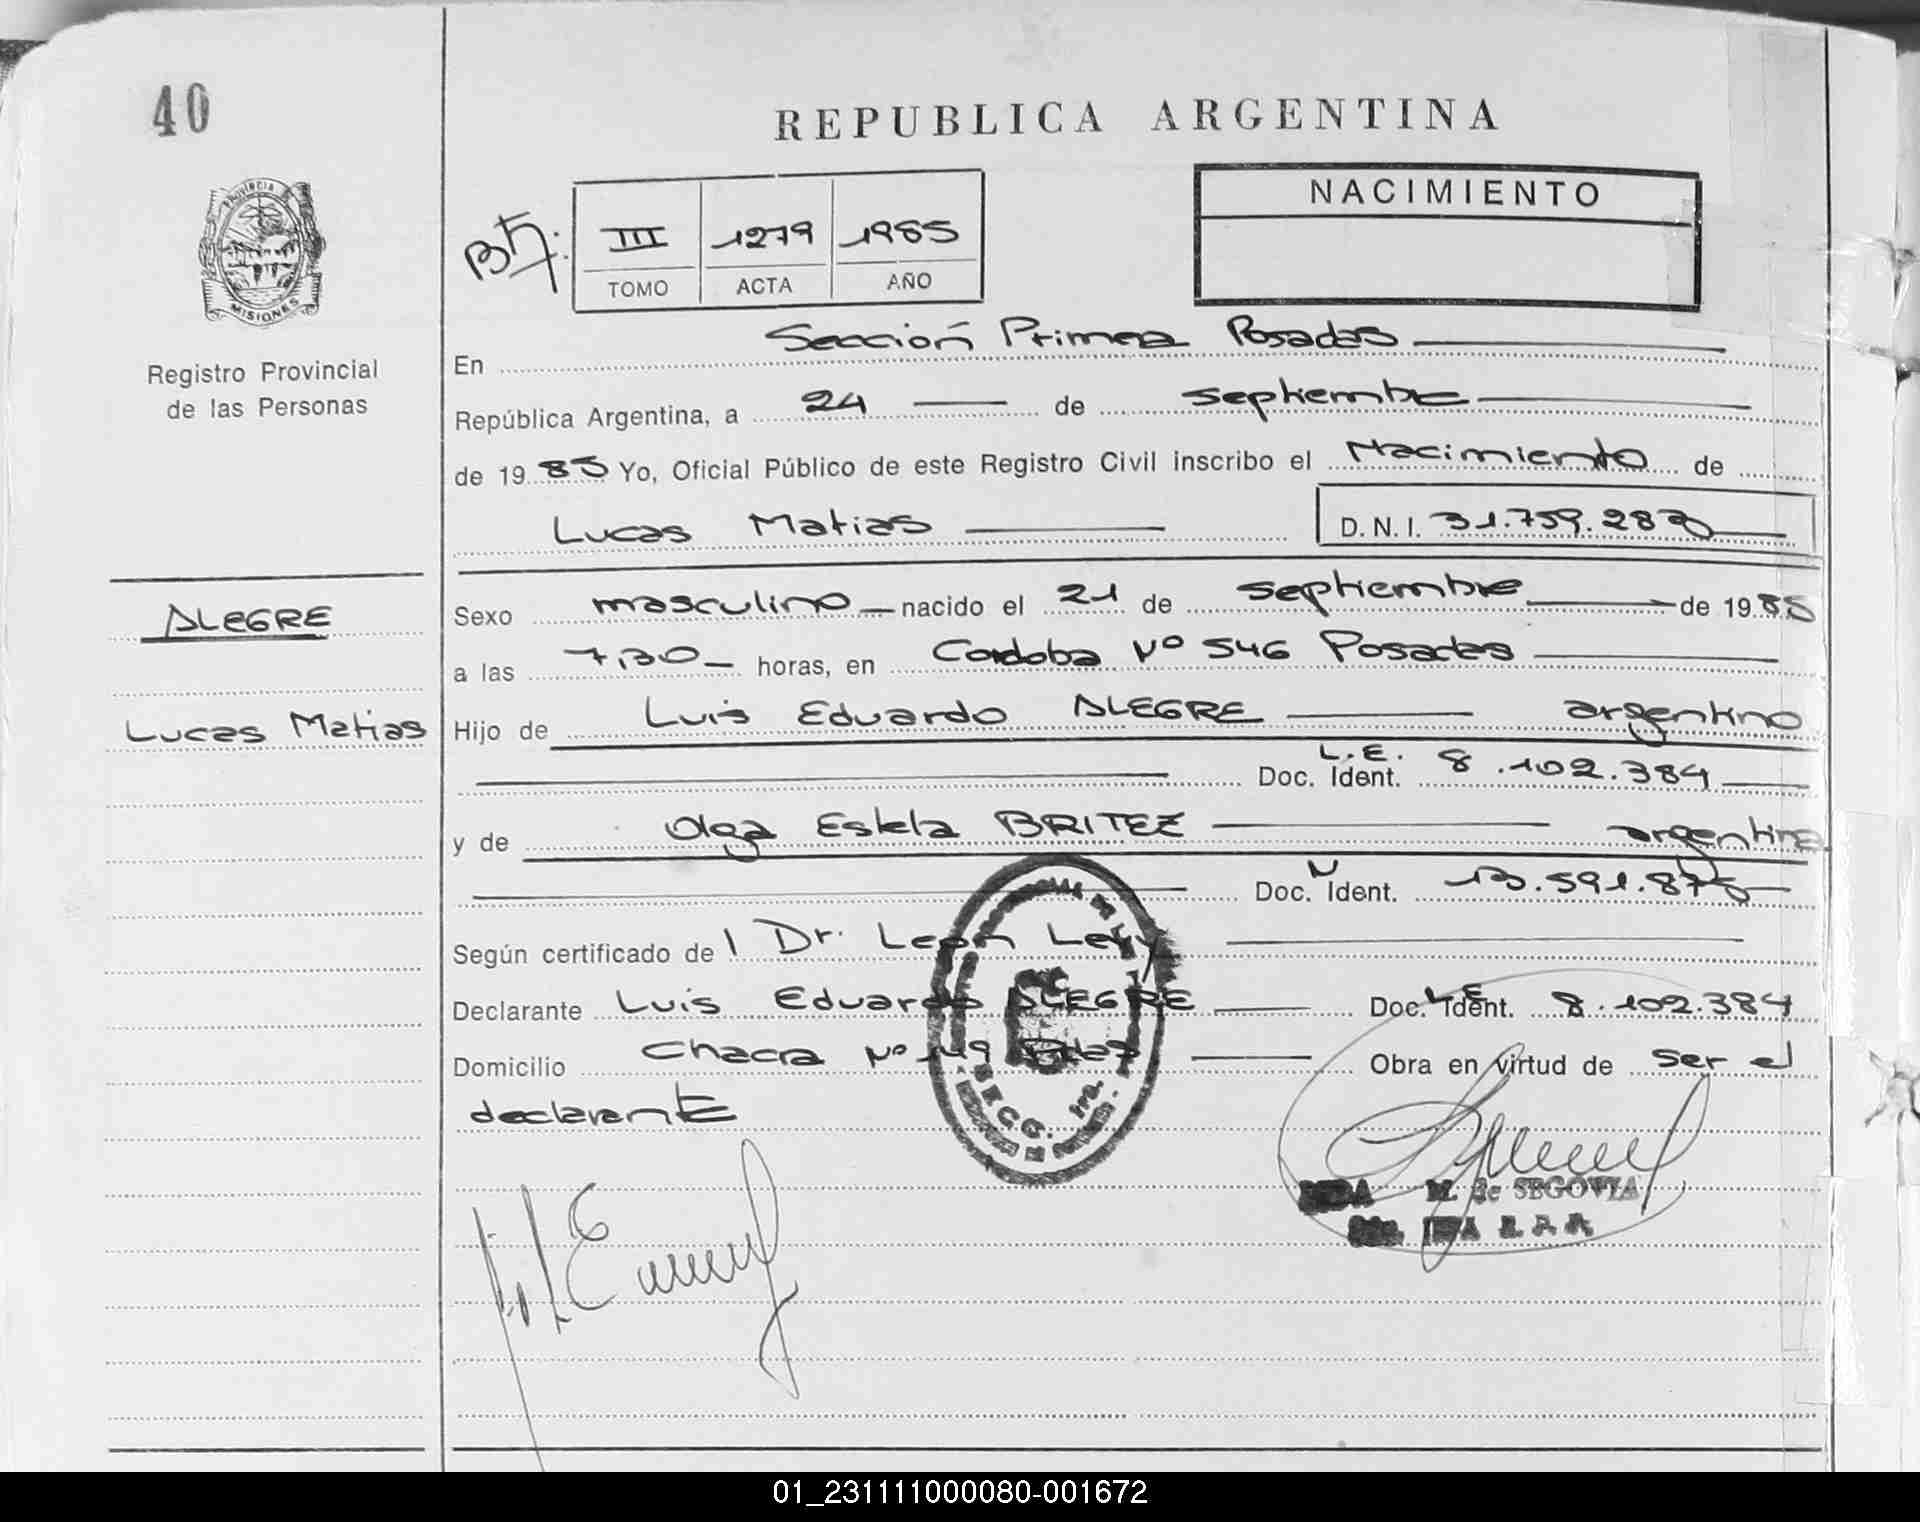 40
REPUBLICA ARGENTINA
PROVINCIA DE
MISIONES
Registro Provincial
de las Personas
III 1279 1985
TOMO ACTA AÑO
NACIMIENTO
En Sección Primera Posadas
República Argentina, a 24 de septiembre
de 1985 Yo, Oficial Público de este Registro Civil inscribo el Nacimiento de
Lucas Matias D.N.I. 31.759.283
ALEGRE
Lucas Matias
Sexo masculino nacido el 21 de septiembre de 1985
a las 7,30 horas, en Cordoba Nº 546 Posadas
Hijo de Luis Eduardo ALEGRE argentino
L.E.
Doc. Ident. 8.102.384
y de Olga Estela BRITEZ argentina
Doc. N Ident. 13.591.875
Según certificado de l Dr. Leon Levy
Declarante Luis Eduardo ALEGRE Doc. L.E. Ident. 8.102.384
Domicilio Chacra Nº 149 Obra en virtud de ser el
declarante
SECC. 1ra.
M. de SEGOVIA
01_231111000080-001672